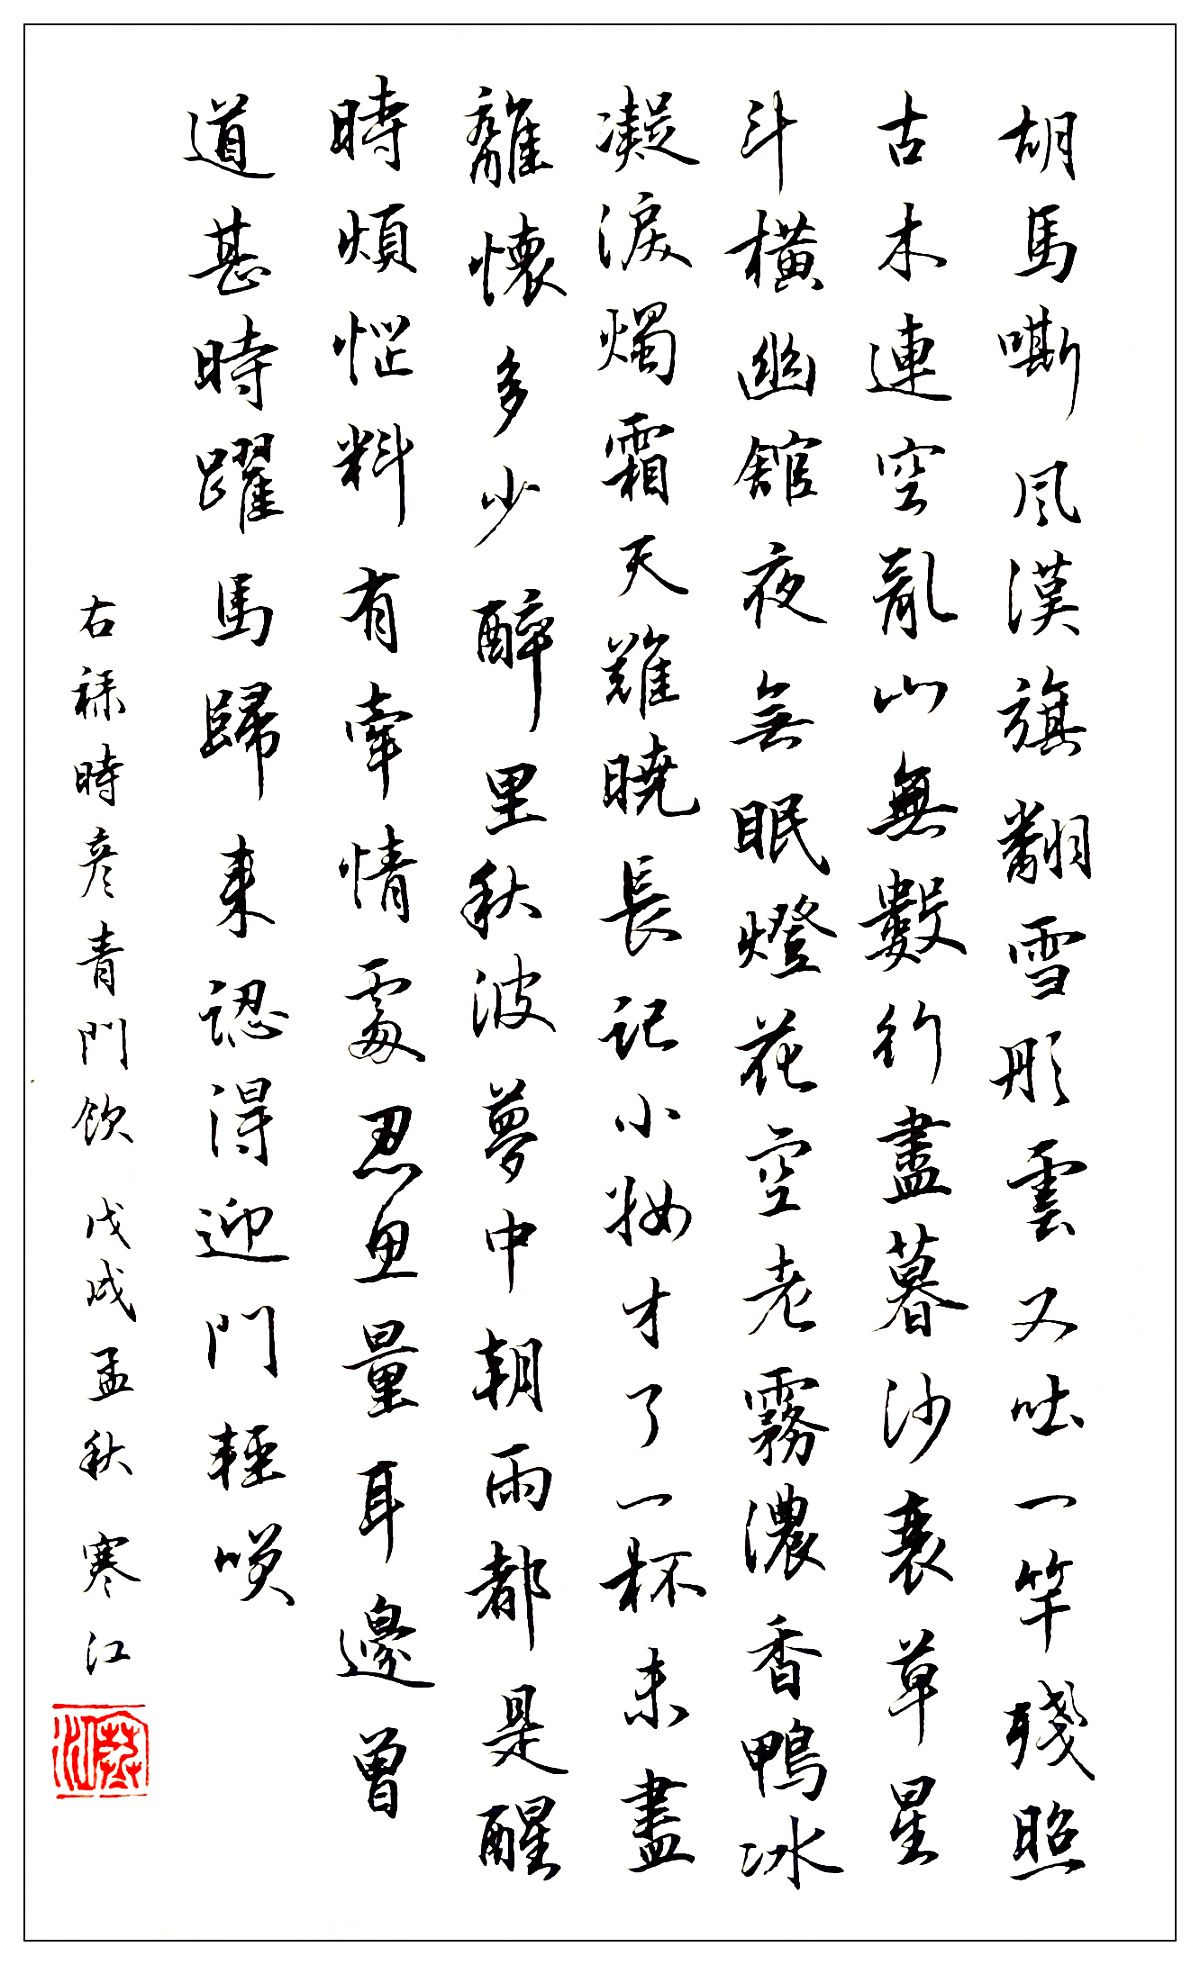 胡馬嘶風漢旗翻雪彤雲又吐一竿殘照
古木連空亂山無數行盡暮沙衰草星
斗橫幽館夜無眠燈花空老霧濃香鴨冰
凝淚燭霜天難曉長記小妝才了一杯未盡
離懷多少醉里秋波夢中朝雨都是醒
時煩惱料有牽情處忍思量耳邊曾
道甚時躍馬歸來認得迎門輕笑
右錄時彥青門飲 戊戌孟秋 寒江
寒江